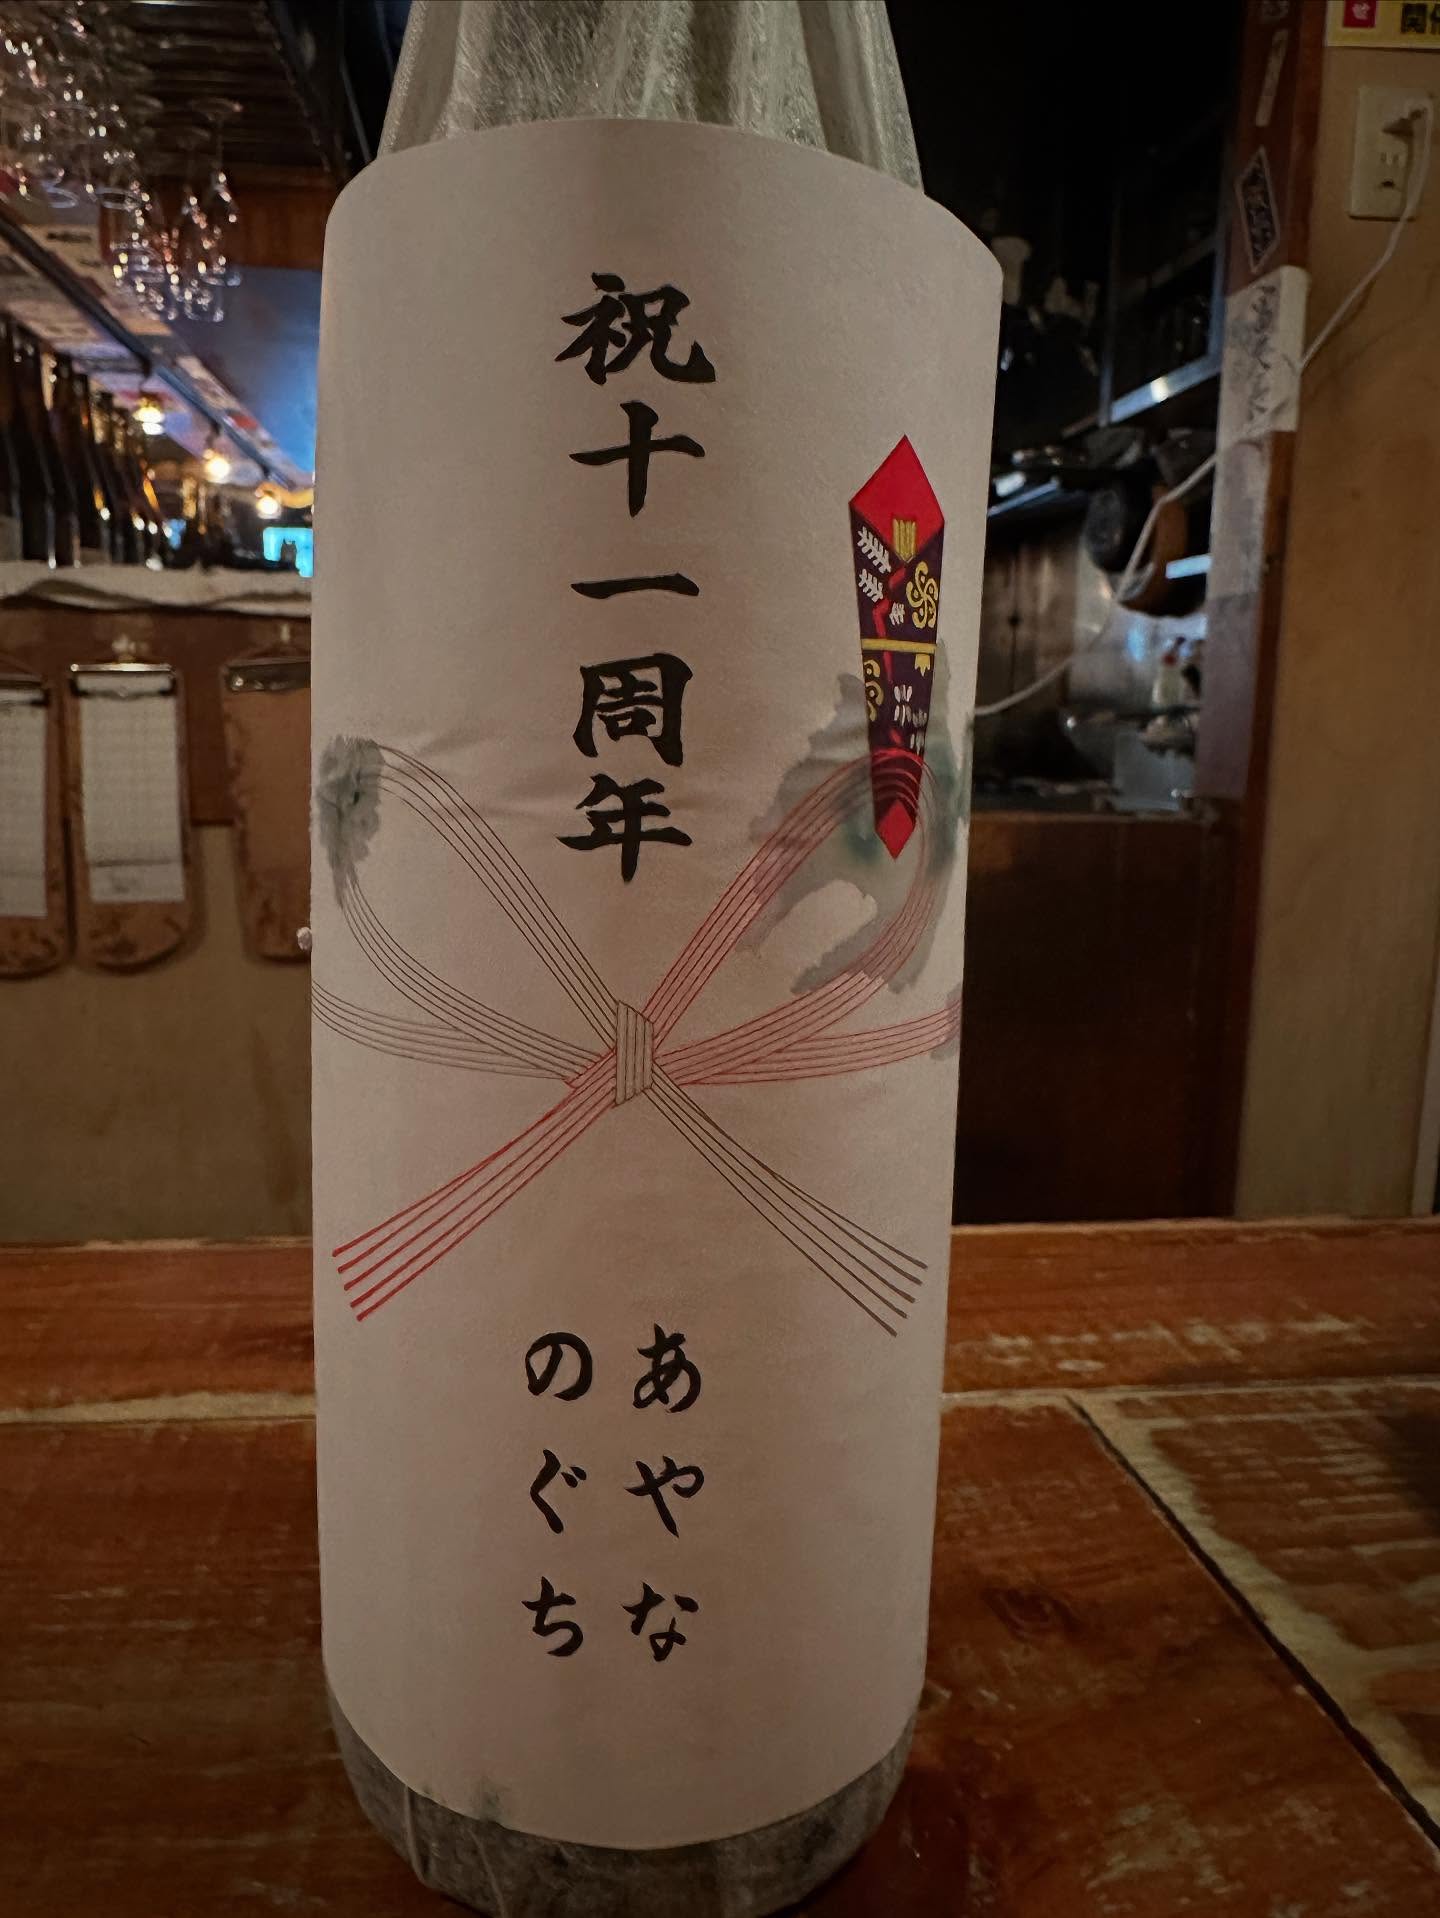 祝十一周年
あやな
のぐち
せ